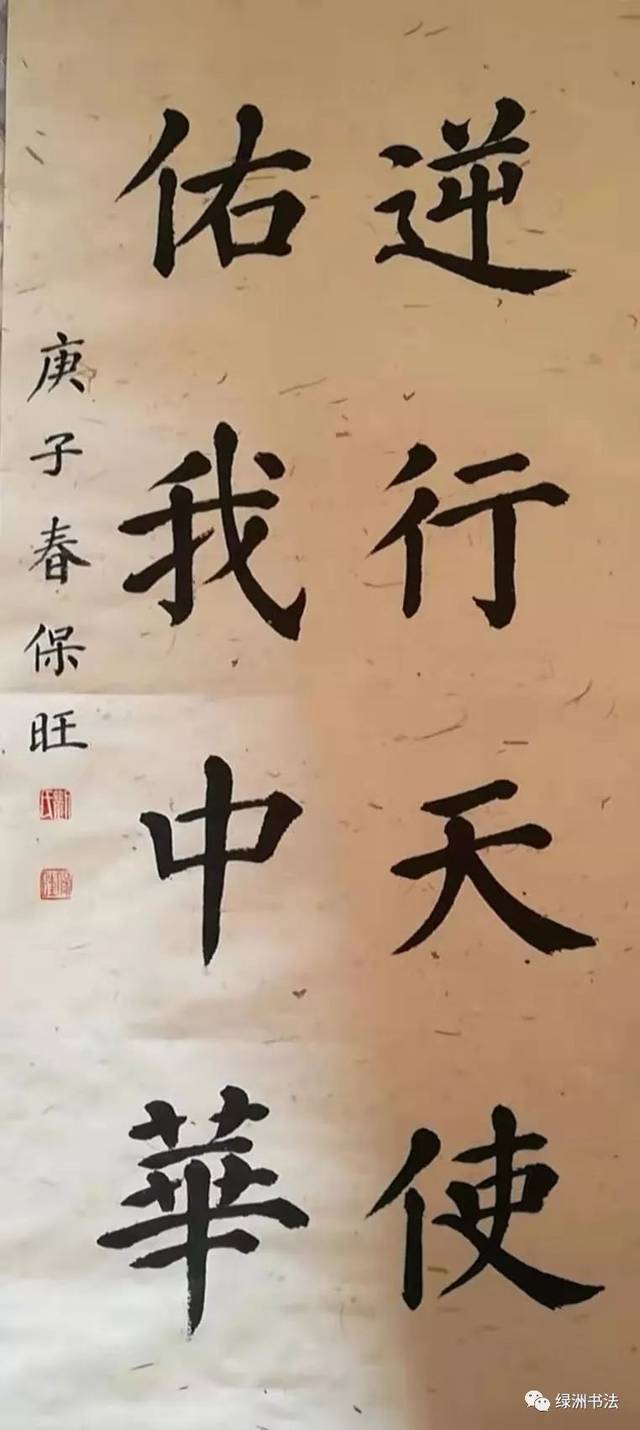 逆行天使
佑我中華
庚子春保旺
绿洲书法